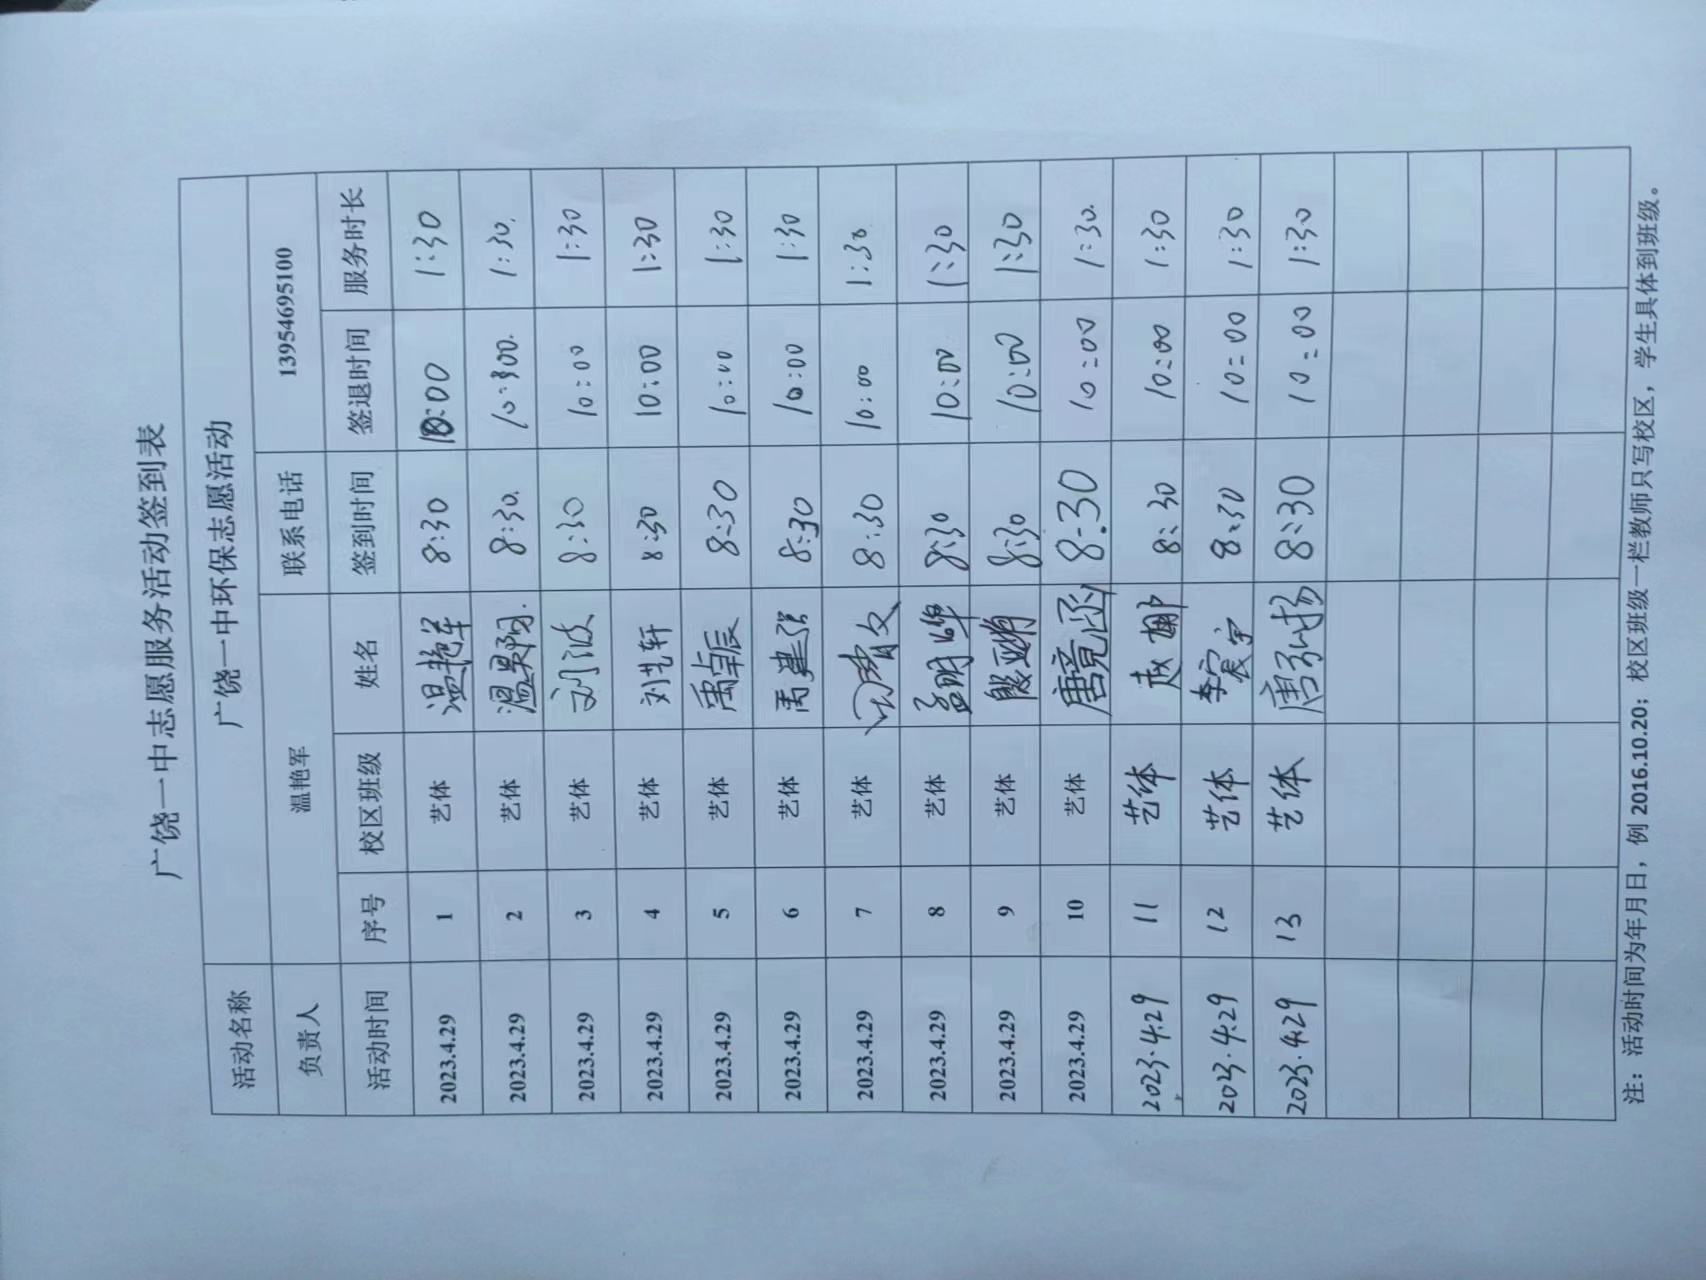 广饶一中志愿服务活动签到表
活动名称 广饶一中环保志愿活动
负责人 温艳军 联系电话 13954695100
活动时间 序号 校区班级 姓名 签到时间 签退时间 服务时长
2023.4.29 1 艺体 温艳军 8:30 10:00 1:30
2023.4.29 2 艺体 温昊阳 8:30. 1:30.
2023.4.29 3 艺体 刘波 8:30 10:00 1:30
2023.4.29 4 艺体 刘艺轩 8:30 10:00 1:30
2023.4.29 5 艺体 禹卓辰 8:30 10:00 1:30
2023.4.29 6 艺体 禹建强 8:30 10:00 1:30
2023.4.29 7 艺体 8:30 10:00 1:30
2023.4.29 8 艺体 8:30 10:00 1:30
2023.4.29 9 艺体 8:30 10:00 1:30
2023.4.29 10 艺体 唐竟函 8:30 10:00 1:30.
2023.4.29 11 艺体 赵娜 8:30 10:00 1:30
2023.4.29 12 艺体 李宸宇 8:30 10:00 1:30
2023.4.29 13 艺体 唐弘扬 8:30 10:00 1:30
注：活动时间为年月日，例 2016.10.20；校区班级一栏教师只写校区，学生具体到班级。